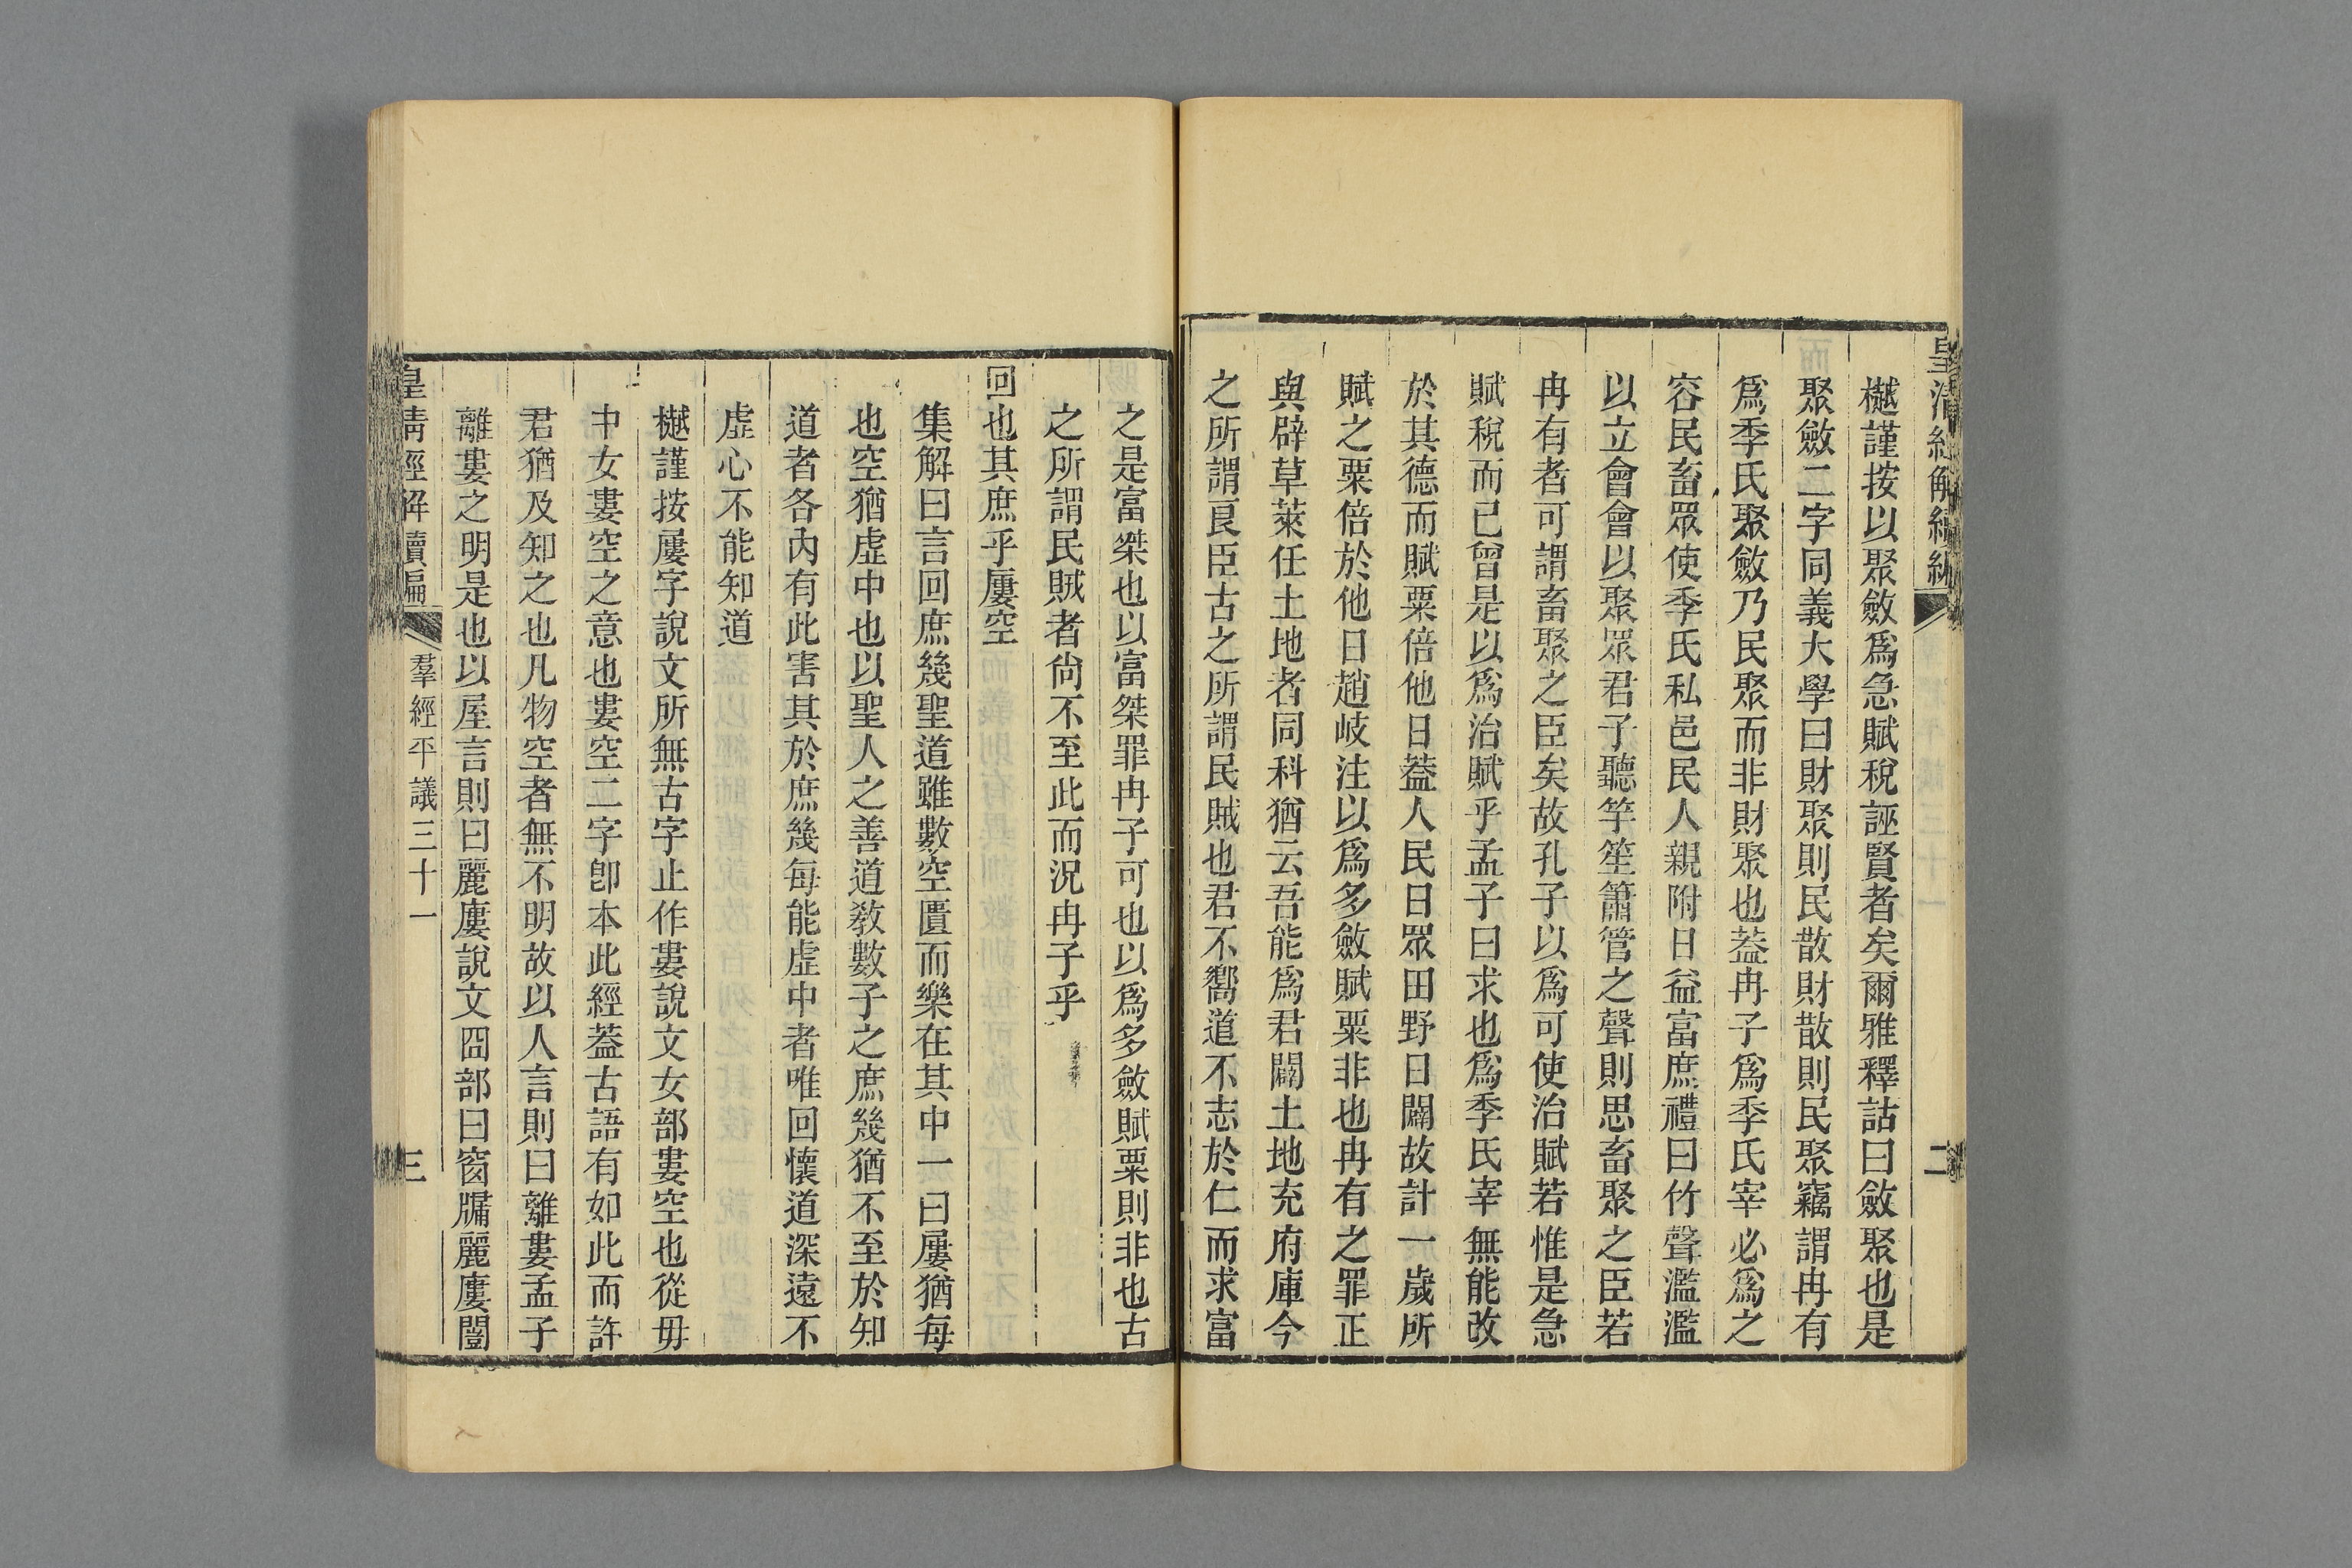 皇清經解續編
二
樾謹按以聚斂爲急賦稅誣賢者矣爾雅釋詁曰斂聚也是
聚斂二字同義大學曰財聚則民散財散則民聚竊謂冉有
爲季氏聚斂乃民聚而非財聚也葢冉子爲季氏宰必爲之
容民畜眾使季氏私邑民人親附日益富庶禮曰竹聲濫濫
以立會會以聚眾君子聽竽笙簫管之聲則思畜聚之臣若
冉有者可謂畜聚之臣矣故孔子以爲可使治賦若惟是急
賦稅而已曾是以爲治賦乎孟子曰求也爲季氏宰無能改
於其德而賦粟倍他日葢人民日眾田野日闢故計一歲所
賦之粟倍於他日趙岐注以爲多斂賦粟非也冉有之罪正
與辟草萊任土地者同科猶云吾能爲君闢土地充府庫今
之所謂良臣古之所謂民賊也君不嚮道不志於仁而求富
之是富桀也以富桀罪冉子可也以爲多斂賦粟則非也古
之所謂民賊者尙不至此而況冉子乎
回也其庶乎屢空
集解曰言回庶幾聖道雖數空匱而樂在其中一曰屢猶每
也空猶虛中也以聖人之善道敎數子之庶幾猶不至於知
道者各內有此害其於庶幾每能虛中者唯回懷道深遠不
虛心不能知道
樾謹按屢字說文所無古字止作婁說文女部婁空也從毋
中女婁空之意也婁空二字卽本此經葢古語有如此而許
君猶及知之也凡物空者無不明故以人言則曰離婁孟子
離婁之明是也以屋言則曰麗廔說文囧部曰窗牖麗廔闓
皇清經解續編
羣經平議三十一
三